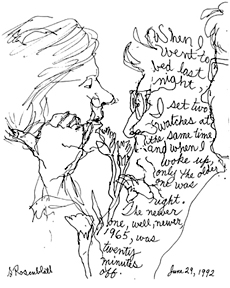 When I
went to
bed last
night,
I set two
watches at
the same time
and when I
woke up,
only the older
one was
right.
The newer
one, well, newer,
1965, was
twenty
minutes
off.
S Rosenblath
June 29, 1992